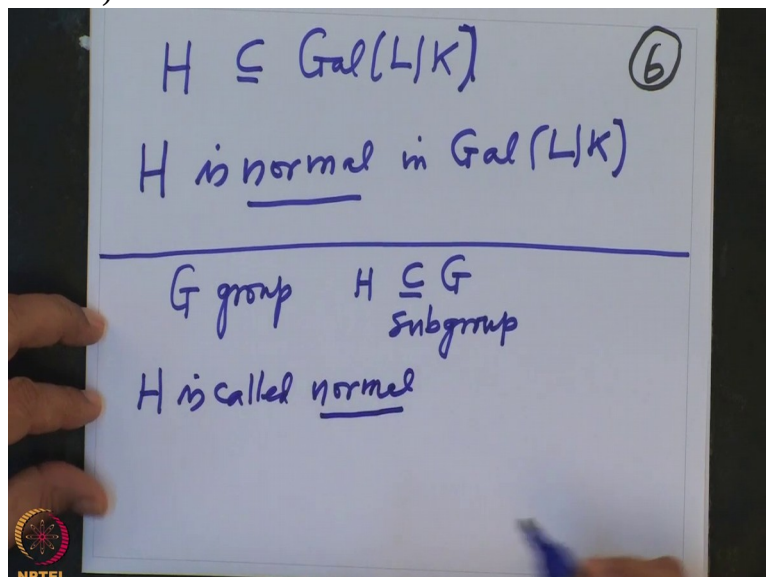 H ⊆ Gal(L|K)
6
H is normal in Gal(L|K)
G group H ⊆ G
subgroup
H is called normal
NPTEL